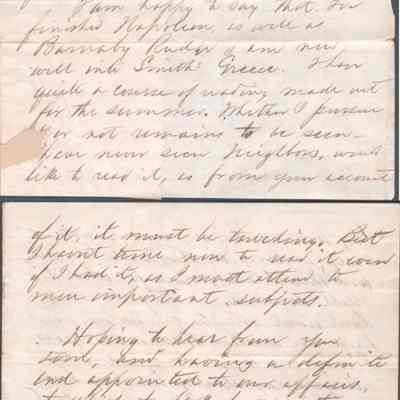 I am happy to say that I've
finished Napoleon, as well as
Barnaby Rudge & am now
well into Smith's Greece. I have
quite a course of reading made out
for the summer. Whether I pursue
it or not remains to be seen.
I have never seen Neighbors, would
like to read it, as from your account
of it, it must be touching. But
I havn't time now to read it even
if I had it, as I must attend to
more important subjects.
Hoping to hear from you
soon, and having a definite
end appointed to our affairs,